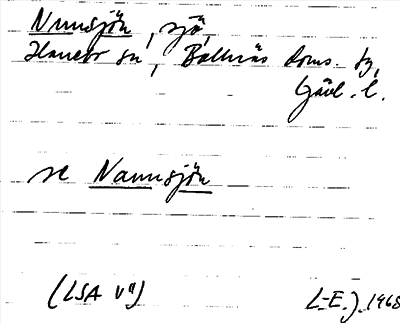 Nunsjön, sjö,
Hanebo sn, Bollnäs doms. by,
Gävl. l.
se Nannsjön
(LSA V11)
L-E.J. 1968